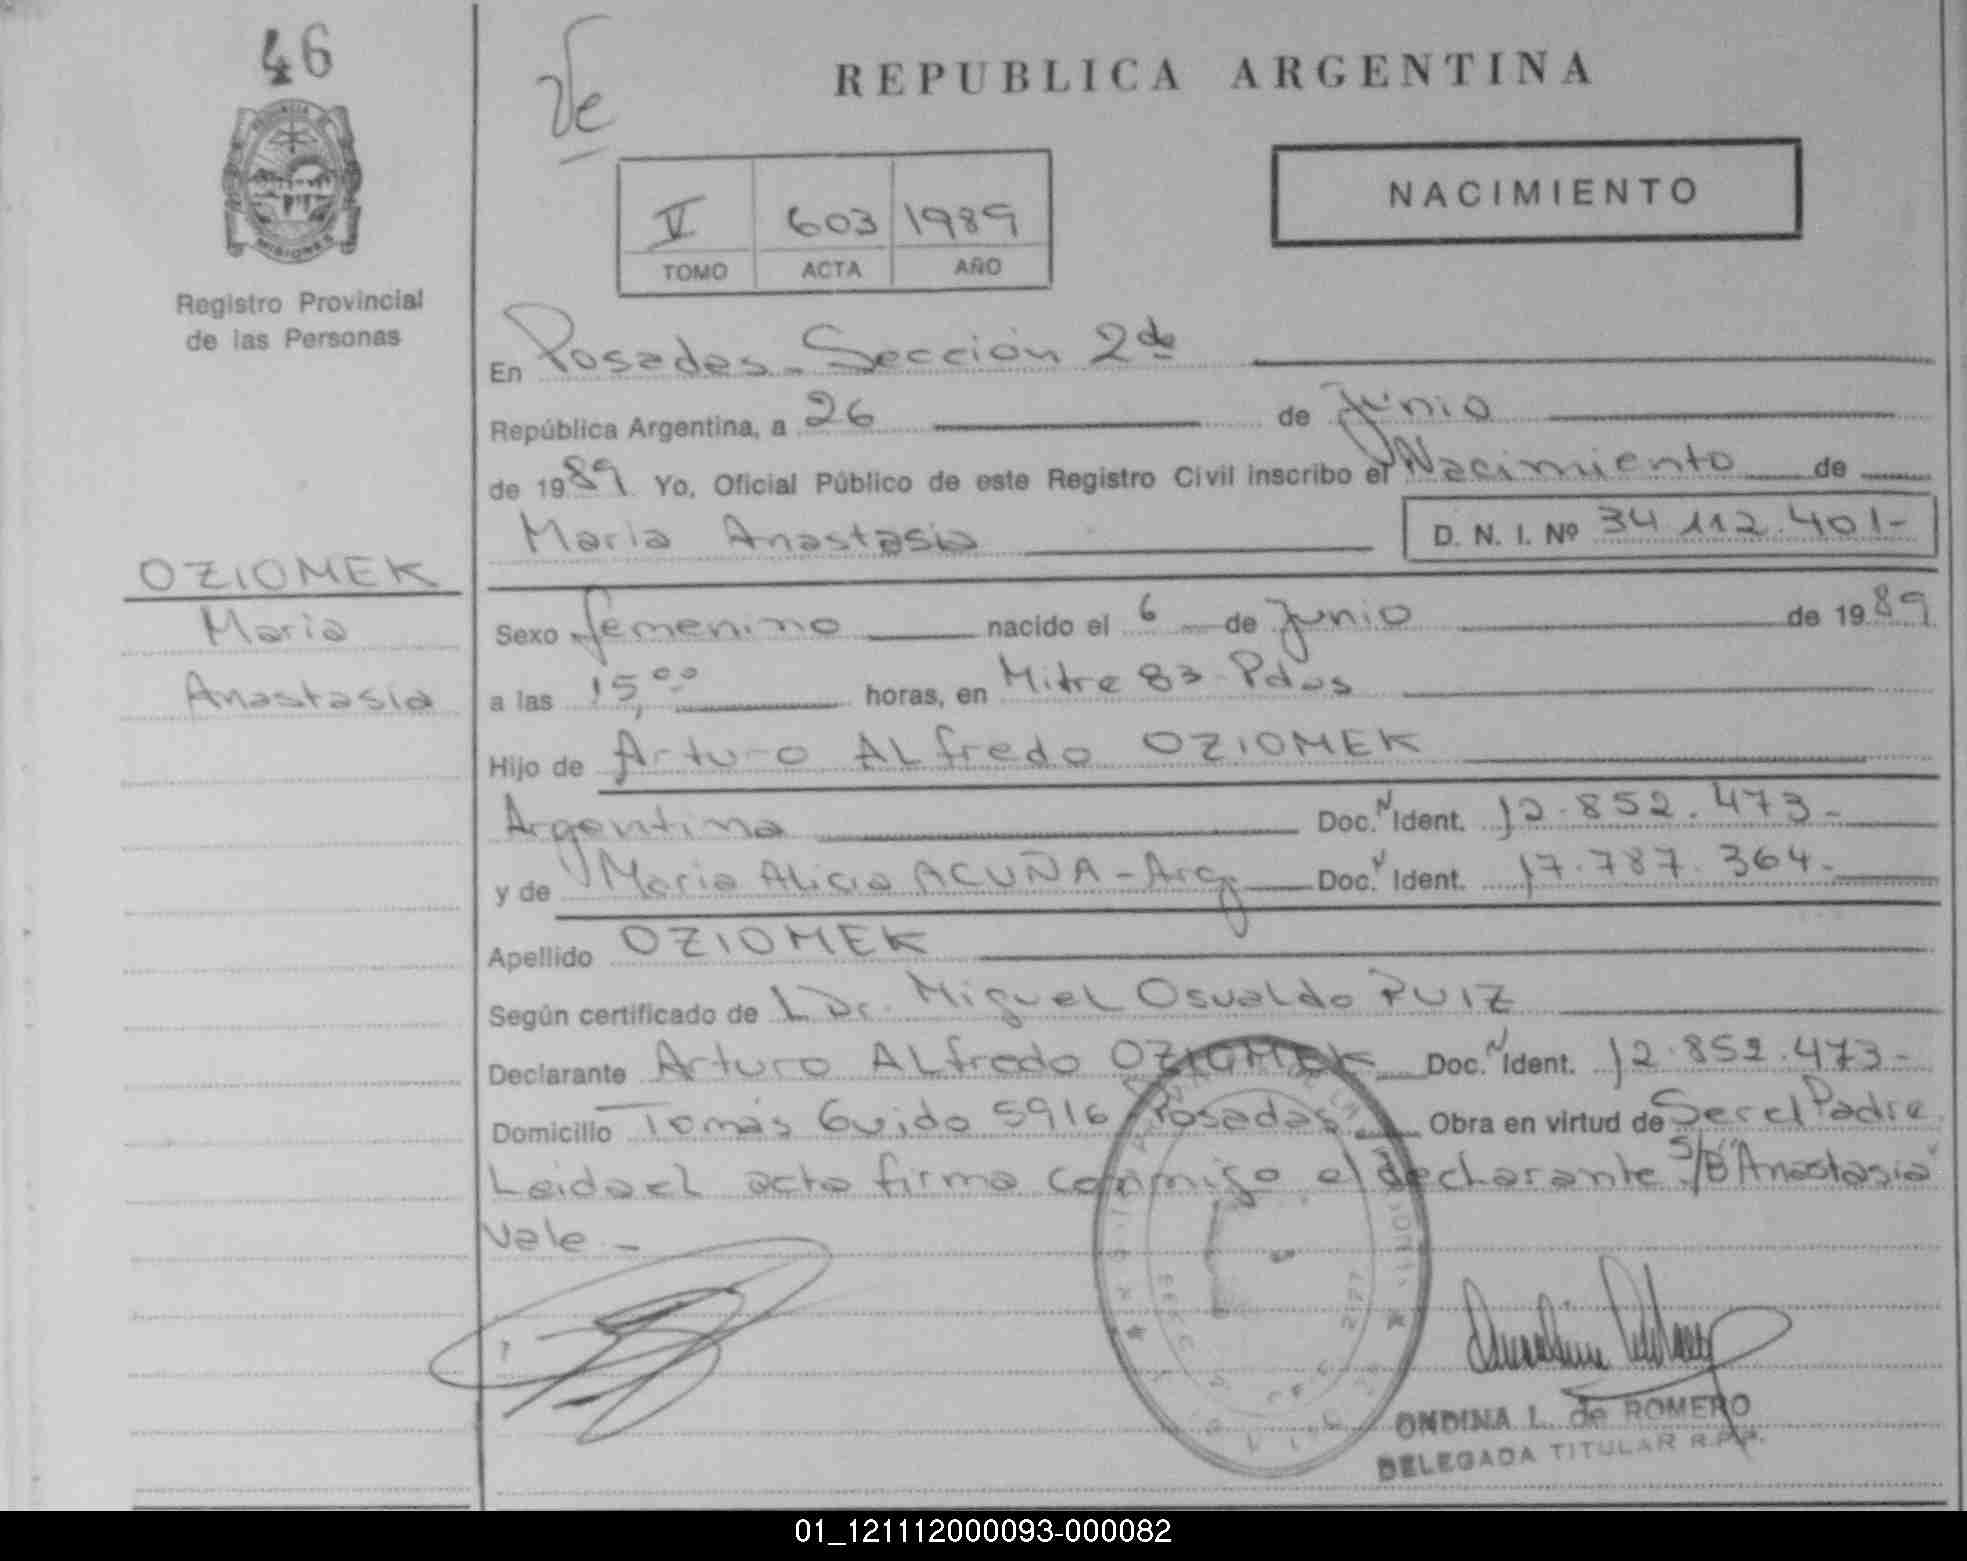 46
Ve
REPUBLICA ARGENTINA
NACIMIENTO
V 603 1989
TOMO ACTA AÑO
PROVINCIA
MISIONES
Registro Provincial
de las Personas
En Posadas - Sección 2da
República Argentina, a 26 de Junio
de 1989 Yo, Oficial Público de este Registro Civil inscribo el Nacimiento de
Maria Anastasia D. N. I. Nº 34.112.401-
OZIOMEK
Maria
Anastasia
Sexo femenino nacido el 6 de Junio de 1989
a las 15,00 horas, en Mitre 83 - Pdas
Hijo de Arturo ALfredo OZIOMEK
Argentina Doc. N Ident. 12.852.473-
y de Maria Alicia ACUÑA - Arg. Doc. N Ident. 17.787.364-
Apellido OZIOMEK
Según certificado de L Dr. Miguel Osvaldo RUIZ
Declarante Arturo ALfredo OZIOMEK Doc. N Ident. 12.852.473-
Domicilio Tomás Guido 5916 Posadas. Obra en virtud de Ser el Padre
Leida el acta firma conmigo el declarante S/B "Anastasia"
Vale -
ONDINA L. de ROMERO
DELEGADA TITULAR R.P.P.
01_121112000093-000082